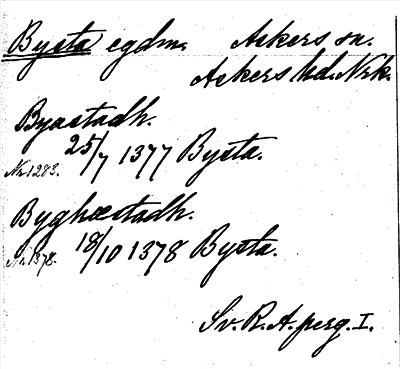 Bysta egdm. Askers sn.
Askers hd. Nrk.
Byastadh.
Nr. 1283. 25/7 1377 Bysta.
Byghæstadh.
Nr. 1378. 18/10 1378 Bysta.
Sv. R. A. perg. I.